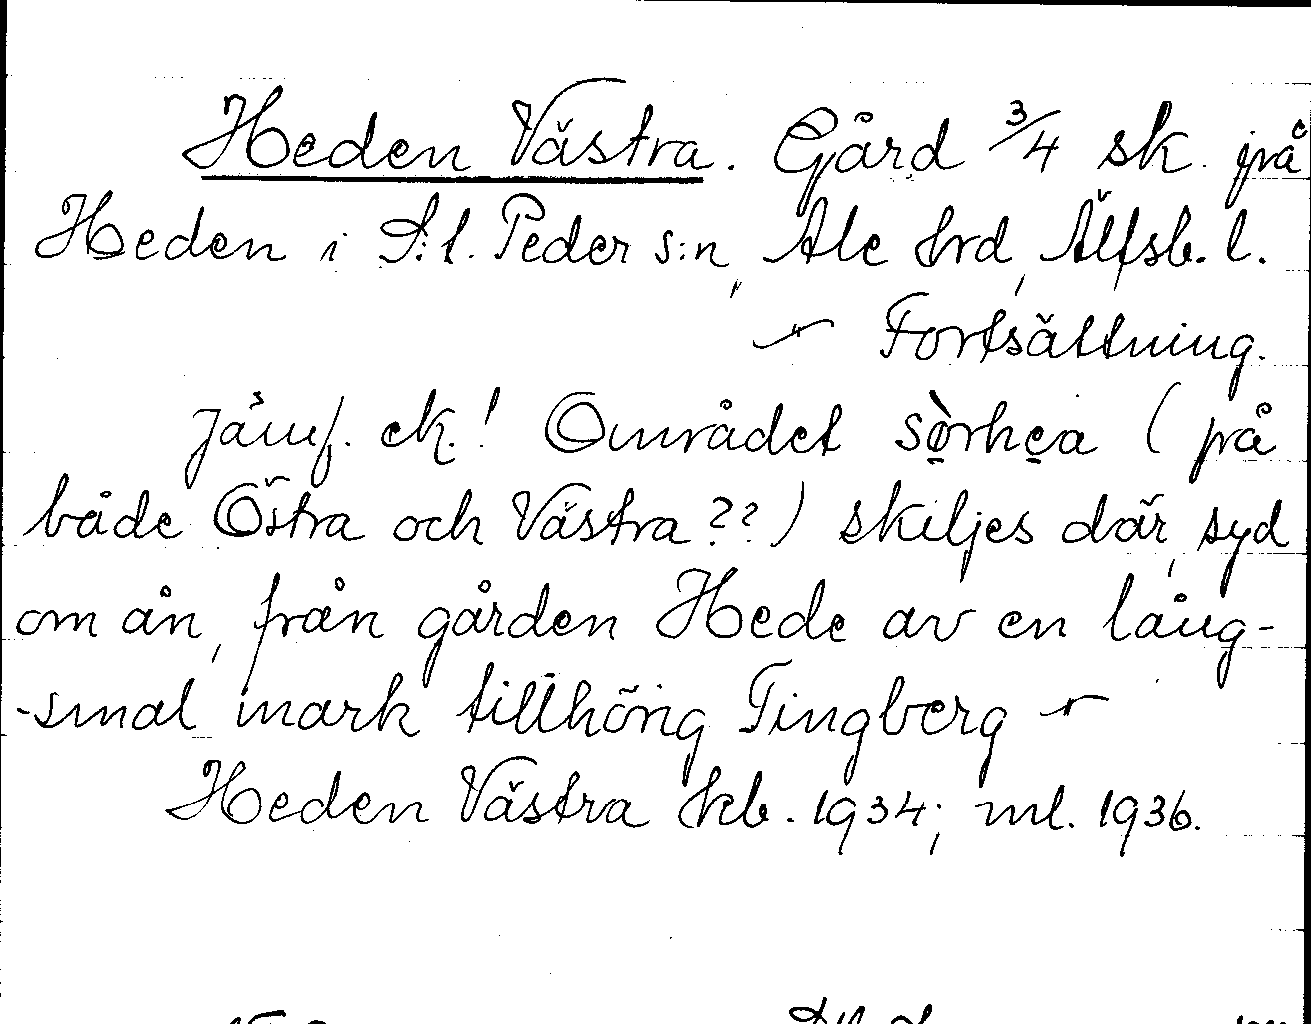 Heden Västra. Gård 3/4 sk. på
Heden i S:t. Peder s:n, Ale hrd, Älfsb. l.
Fortsättning.
Jämf. ek.! Området sò̤rhe̤a (på
både Östra och Västra??) skiljes där, syd
om ån, från gården Hede av en lång-
-smal mark tillhörig Tingberg
Heden Västra hkb. 1934; ml. 1936.